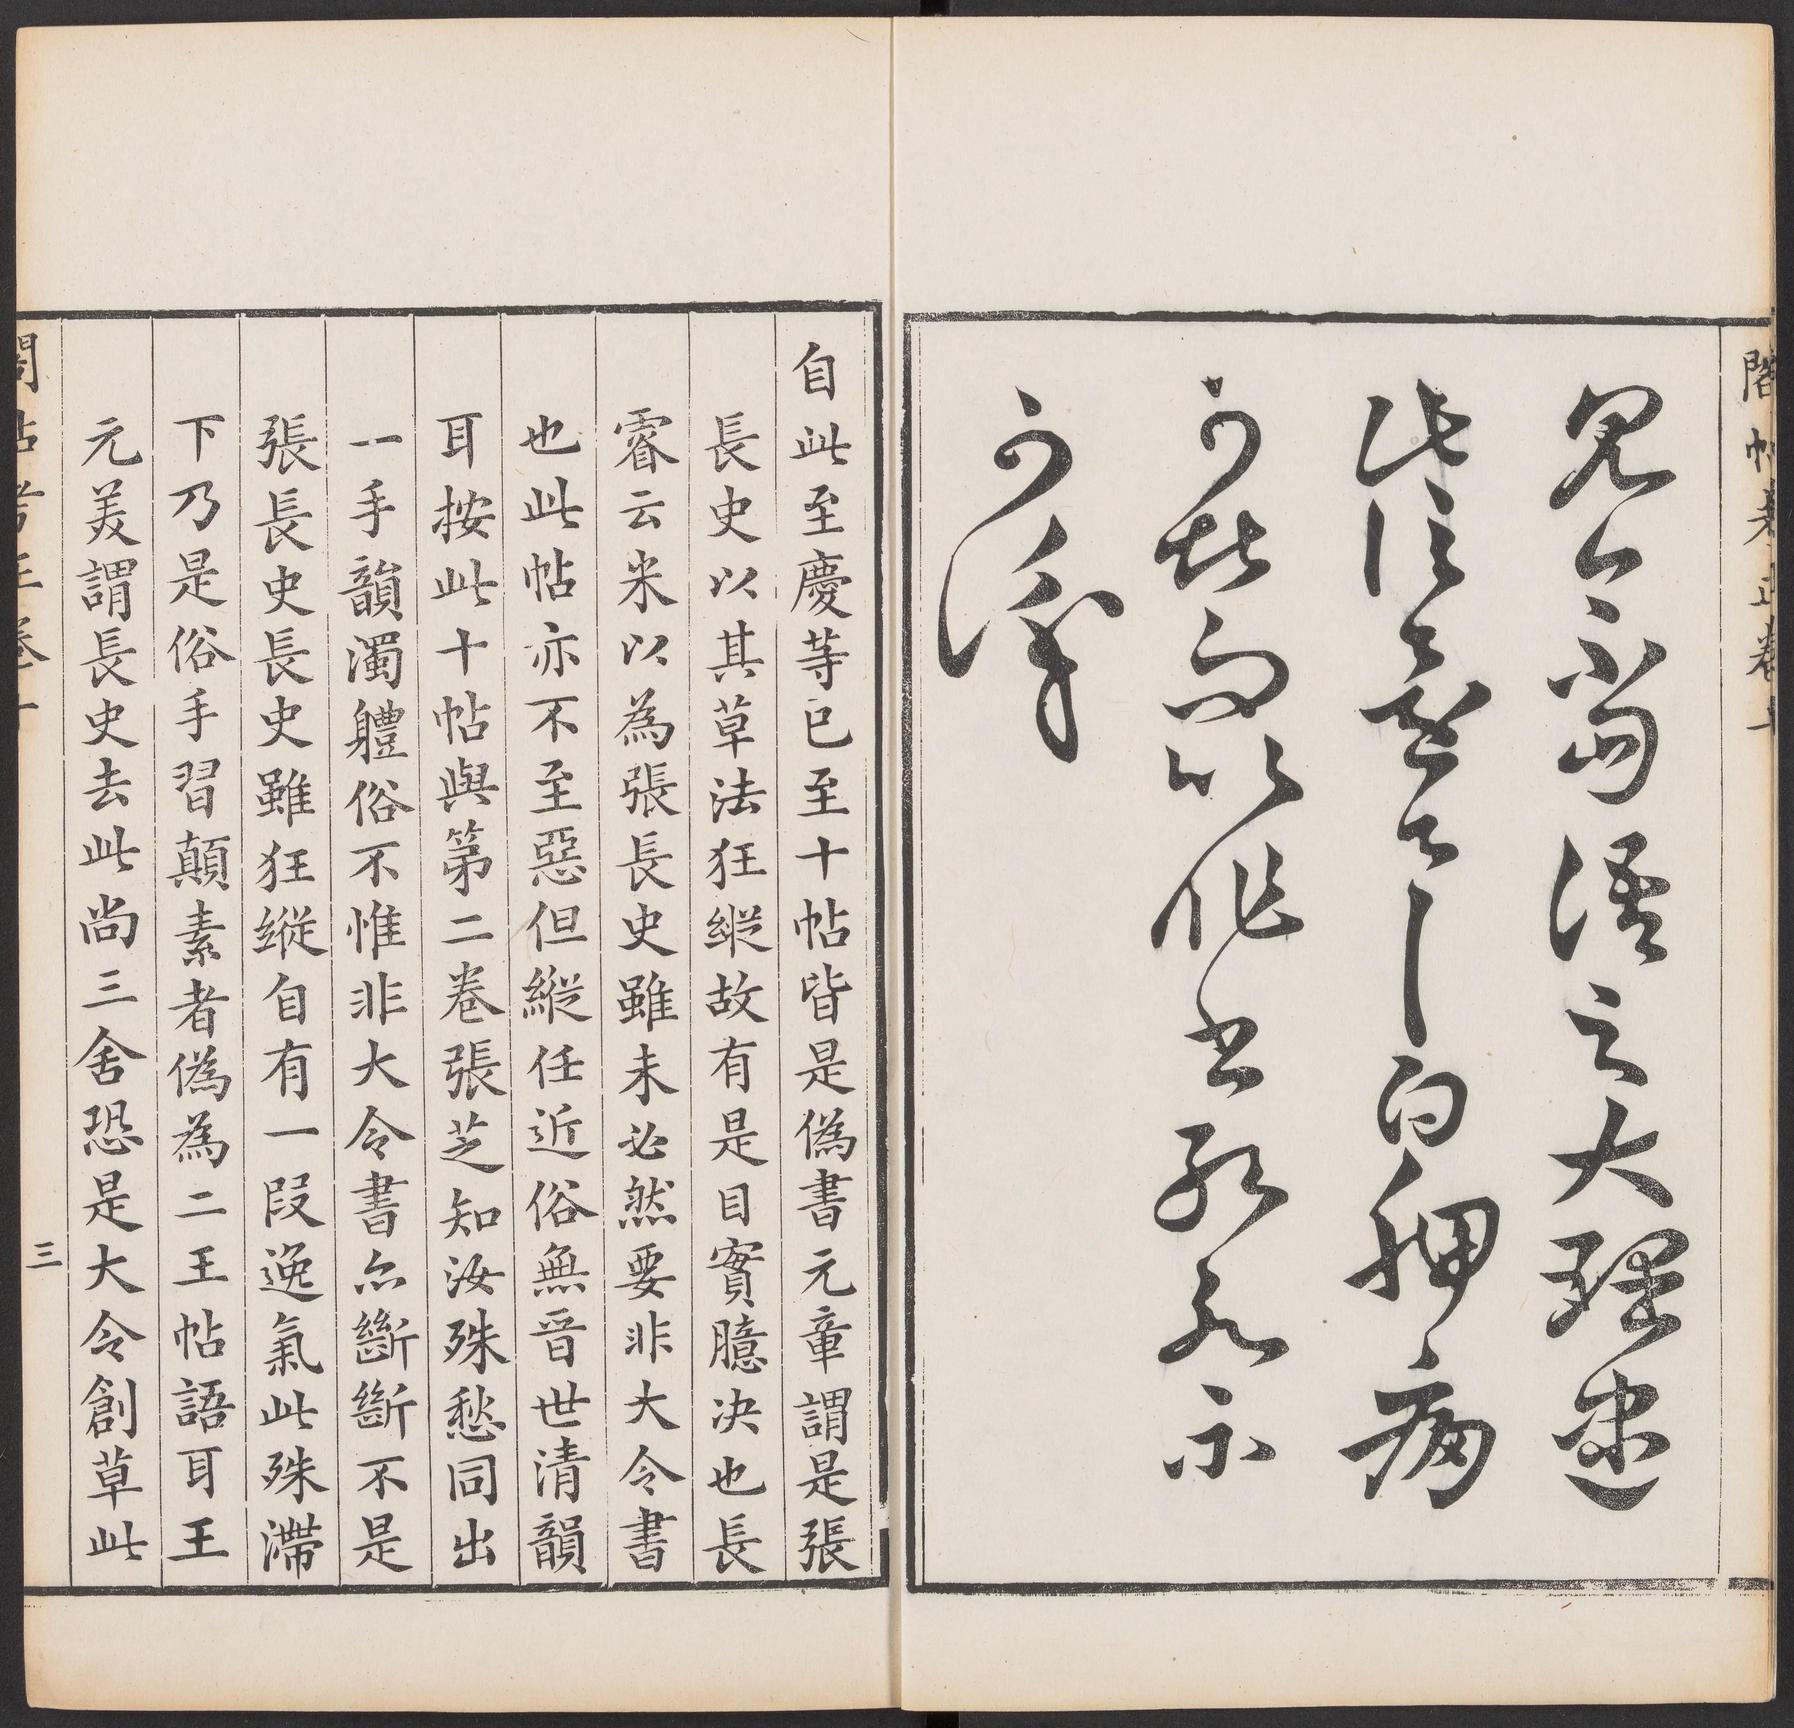 閣帖考正卷十
見公當語之大理盡
此信還一一白胛痛
可堪而以作書不
可識
自此至慶等已至十帖皆是偽書元章謂是張
長史以其草法狂縱故有是目實臆决也長
睿云米以為張長史雖未必然要非大令書
也此帖亦不至惡但縱任近俗無晉世清韻
耳按此十帖與第二卷張芝知汝殊愁同出
一手韻濁軆俗不惟非大令書亦斷斷不是
張長史長史雖狂縱自有一段逸氣此殊滯
下乃是俗手習顛素者偽為二王帖語耳王
元美謂長史去此尚三舍恐是大令創草此
閣帖考正卷十
三